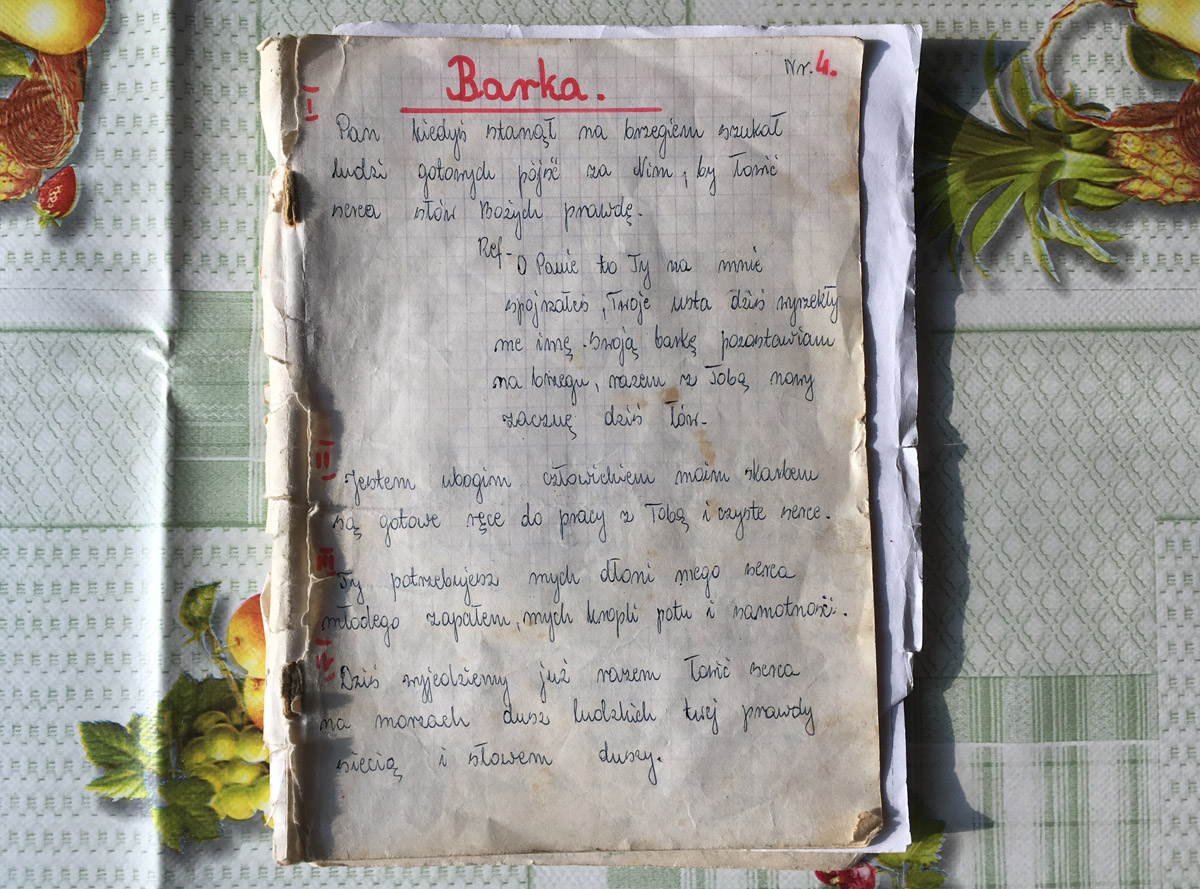 Barka.
Nr. 4.
I
Pan kiedyś stanął na brzegiem szukał
ludzi gotowych pójść za Nim, by łowić
serca słów Bożych prawdę.
Ref- O Panie to Ty na mnie
spojrzałeś, Twoje usta dziś wyrzekły
me imię. Swoją barkę pozostawiam
na brzegu, razem z Tobą nowy
zacznę dziś łów.
II
Jestem ubogim człowiekiem moim skarbem
są gotowe ręce do pracy z Tobą i czyste serce.
III
Ty potrzebujesz mych dłoni mego serca
młodego zapałem, mych kropli potu i samotności.
IV
Dziś wyjedziemy już razem łowić serca
na morzach dusz ludzkich twej prawdy
siecią i słowem duszy.